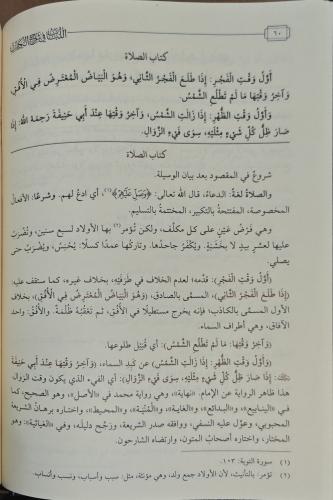 ٦٠
اللباب في شرح الكتاب
كتاب الصلاة
أَوَّلُ وَقْتِ الْفَجْرِ: إِذَا طَلَعَ الْفَجْرُ الثَّانِي، وَهُوَ الْبَيَاضُ الْمُعْتَرِضُ فِي الْأُفُقِ،
وَآخِرُ وَقْتِهَا مَا لَمْ تَطْلُعِ الشَّمْسُ.
وَأَوَّلُ وَقْتِ الظُّهْرِ: إِذَا زَالَتِ الشَّمْسُ، وَآخِرُ وَقْتِهَا عِنْدَ أَبِي حَنِيفَةَ رَحِمَهُ اللهُ: إِذَا
صَارَ ظِلُّ كُلِّ شَيْءٍ مِثْلَيْهِ، سِوَى فَيْءِ الزَّوَالِ.
كتاب الصلاة
شروع في المقصود بعد بيان الوسيلة.
والصلاة لغةً: الدعاءُ، قال الله تعالى: ﴿وَصَلِّ عَلَيْهِمْ﴾(١)، أي ادعُ لهم. وشرعًا: الأفعالُ
المخصوصة، المفتتحةُ بالتكبير، المختتمةُ بالتسليم.
وهي فرضُ عَيْنٍ على كل مكلَّف، ولكن تُؤمر(٢) بها الأولاد لسبع سنين، وتُضرَبُ
عليها لعشرٍ بيدٍ لا بخشبةٍ. ويُكفَّر جاحدها. وتاركها عمدًا كسلًا: يُحبَسُ، ويُضرَبُ حتى
يصلي.
(أَوَّلُ وَقْتِ الْفَجْرِ) قدَّمه؛ لعدم الخلاف في طَرَفَيْهِ، بخلاف غيره، كما ستقف عليه:
(إِذَا طَلَعَ الْفَجْرُ الثَّانِي)، المسمَّى بالصادق، (وَهُوَ الْبَيَاضُ الْمُعْتَرِضُ فِي الْأُفُقِ)، بخلاف
الأول المسمَّى بالكاذب؛ فإنه يخرج مستطيلًا في الأفق، ثم تَعْقُبُهُ ظُلْمةٌ. والأفُقُ: واحد
الآفاق، وهي أطراف السماء.
(وَآخِرُ وَقْتِهَا: مَا لَمْ تَطْلُعِ الشَّمْسُ): أي قُبَيْلَ طلوعها.
(وَأَوَّلُ وَقْتِ الظُّهْرِ: إِذَا زَالَتِ الشَّمْسُ) عن كبد السماء، (وَآخِرُ وَقْتِهَا عِنْدَ أَبِي حَنِيفَةَ
إِذَا صَارَ ظِلُّ كُلِّ شَيْءٍ مِثْلَيْهِ، سِوَى فَيْءِ الزَّوَالِ): أي الفيء الذي يكون وقت الزوال
هذا ظاهر الرواية عن الإمام. «نهاية» وهي رواية محمد في «الأصل»، وهو الصحيح، كما
في «الينابيع» و«البدائع» و«الغاية»، و«المُنْيَة» و«المحيط»، واختاره برهانُ الشريعة
المحبوبي، وعوَّل عليه النسفي، ووافقه صدر الشريعة، ورجح دليلَه، وفي «الغياثية» وهو
المختار، واختاره أصحابُ المتون، وارتضاه الشارحون.
(١) سورة التوبة: ١٠٣.
(٢) تؤمر: بالتأنيث، لأن الأولاد جمع ولد، وهي مؤنثة، مثل: سبب وأسباب، ونسب وأنساب.